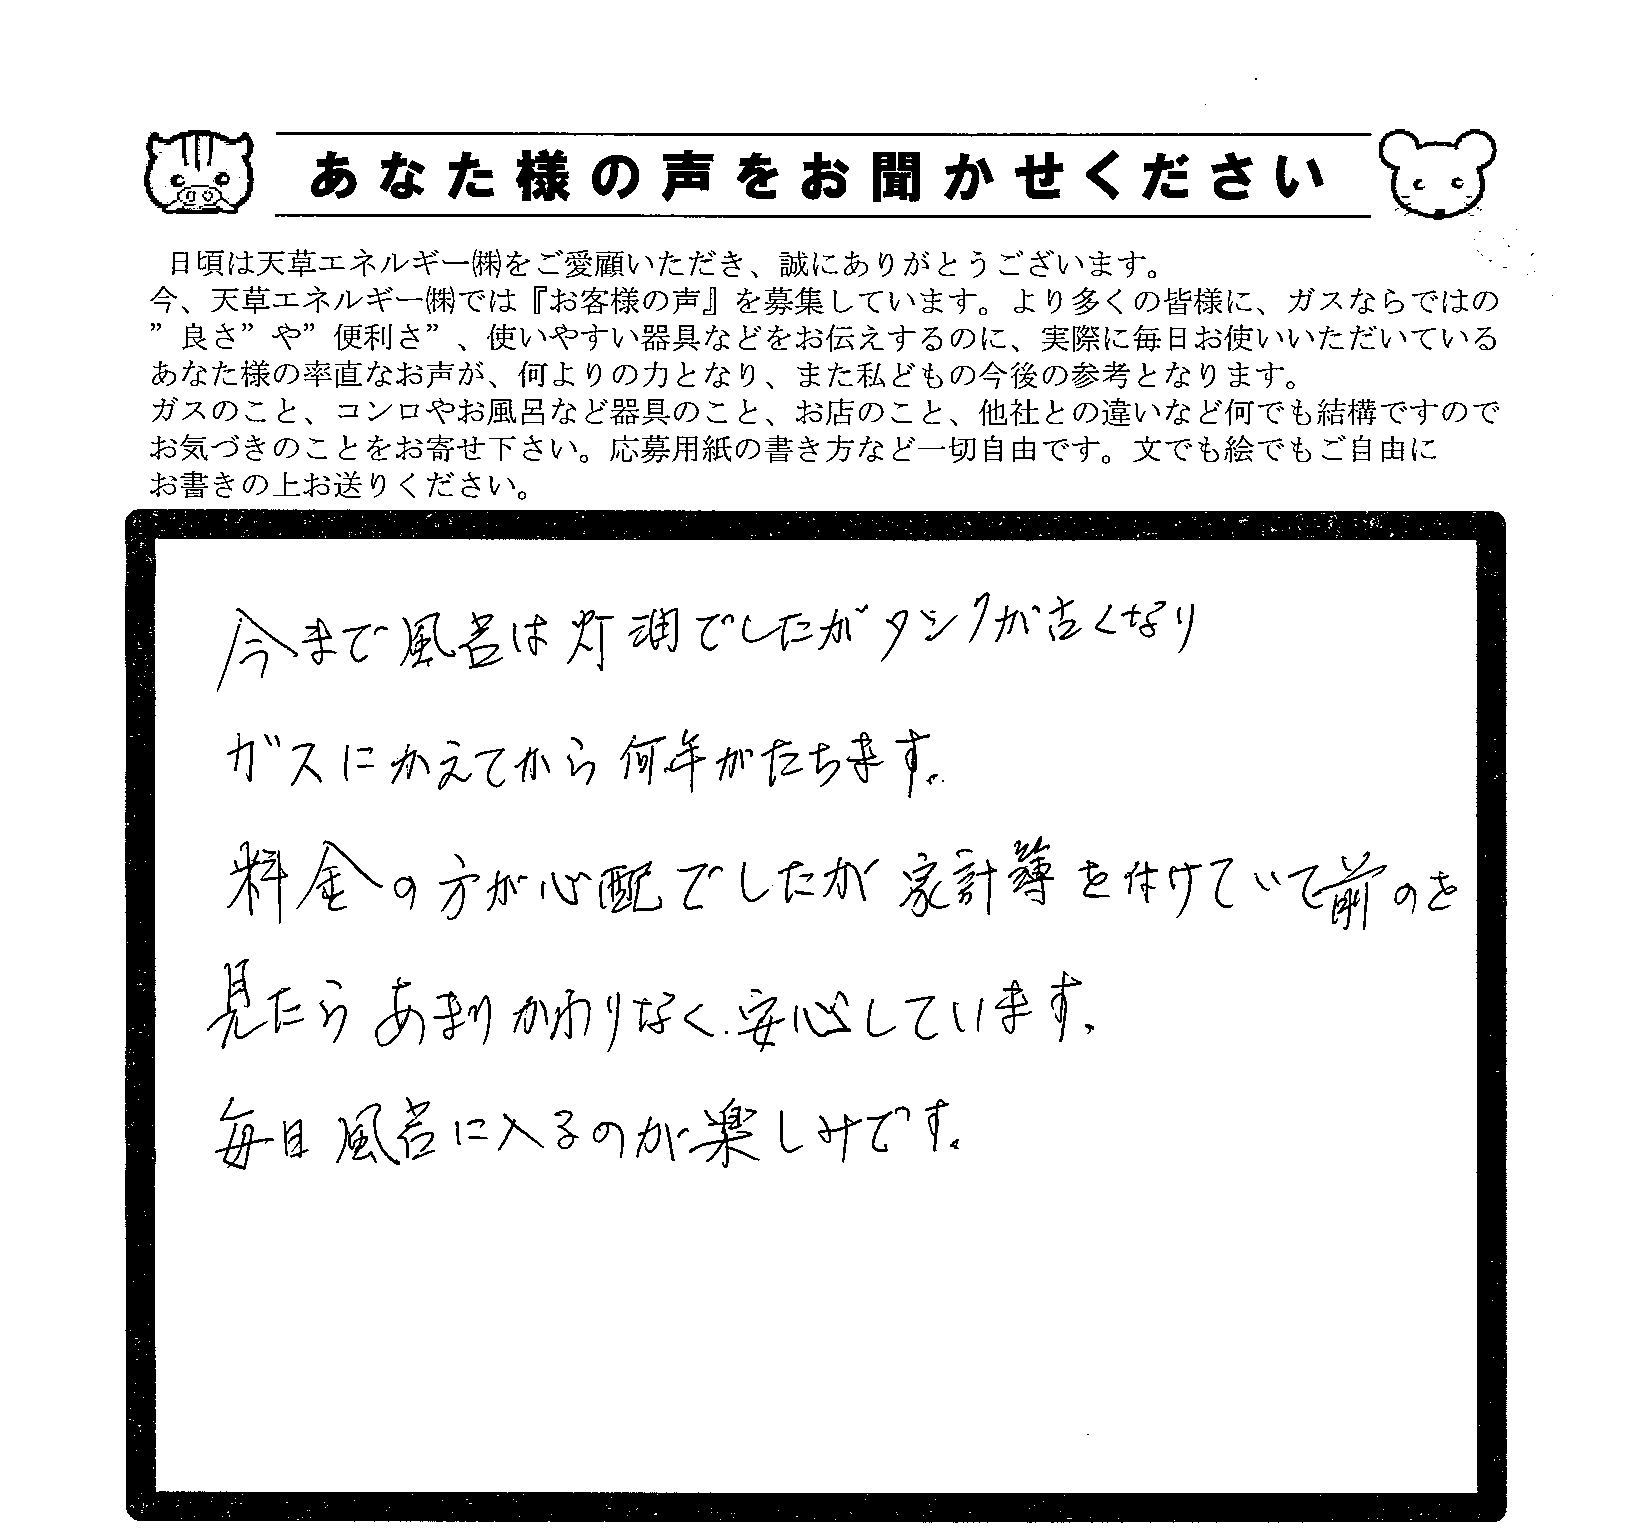 あなた様の声をお聞かせください
日頃は天草エネルギー㈱をご愛顧いただき、誠にありがとうございます。
今、天草エネルギー㈱では『お客様の声』を募集しています。より多くの皆様に、ガスならではの
”良さ”や”便利さ”、使いやすい器具などをお伝えするのに、実際に毎日お使いいただいている
あなた様の率直なお声が、何よりの力となり、また私どもの今後の参考となります。
ガスのこと、コンロやお風呂など器具のこと、お店のこと、他社との違いなど何でも結構ですので
お気づきのことをお寄せ下さい。応募用紙の書き方など一切自由です。文でも絵でもご自由に
お書きの上お送りください。
今まで風呂は灯油でしたがタンクが古くなり
ガスにかえてから何年がたちます。
料金の方が心配でしたが家計簿を付けていて前のを
見たらあまりかわりなく、安心しています。
毎日風呂に入るのが楽しみです。